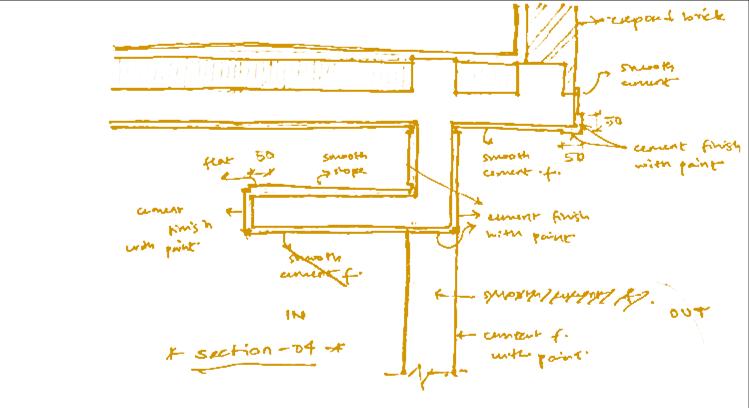 exposed brick
smooth
cement
50
50
cement finish
with paint
flat
50
smooth
slope
smooth
cement f.
cement
finish
with paint
cement finish
with paint
smooth
cement f.
smooth cement f.
OUT
IN
* section-04 *
cement f.
with paint.